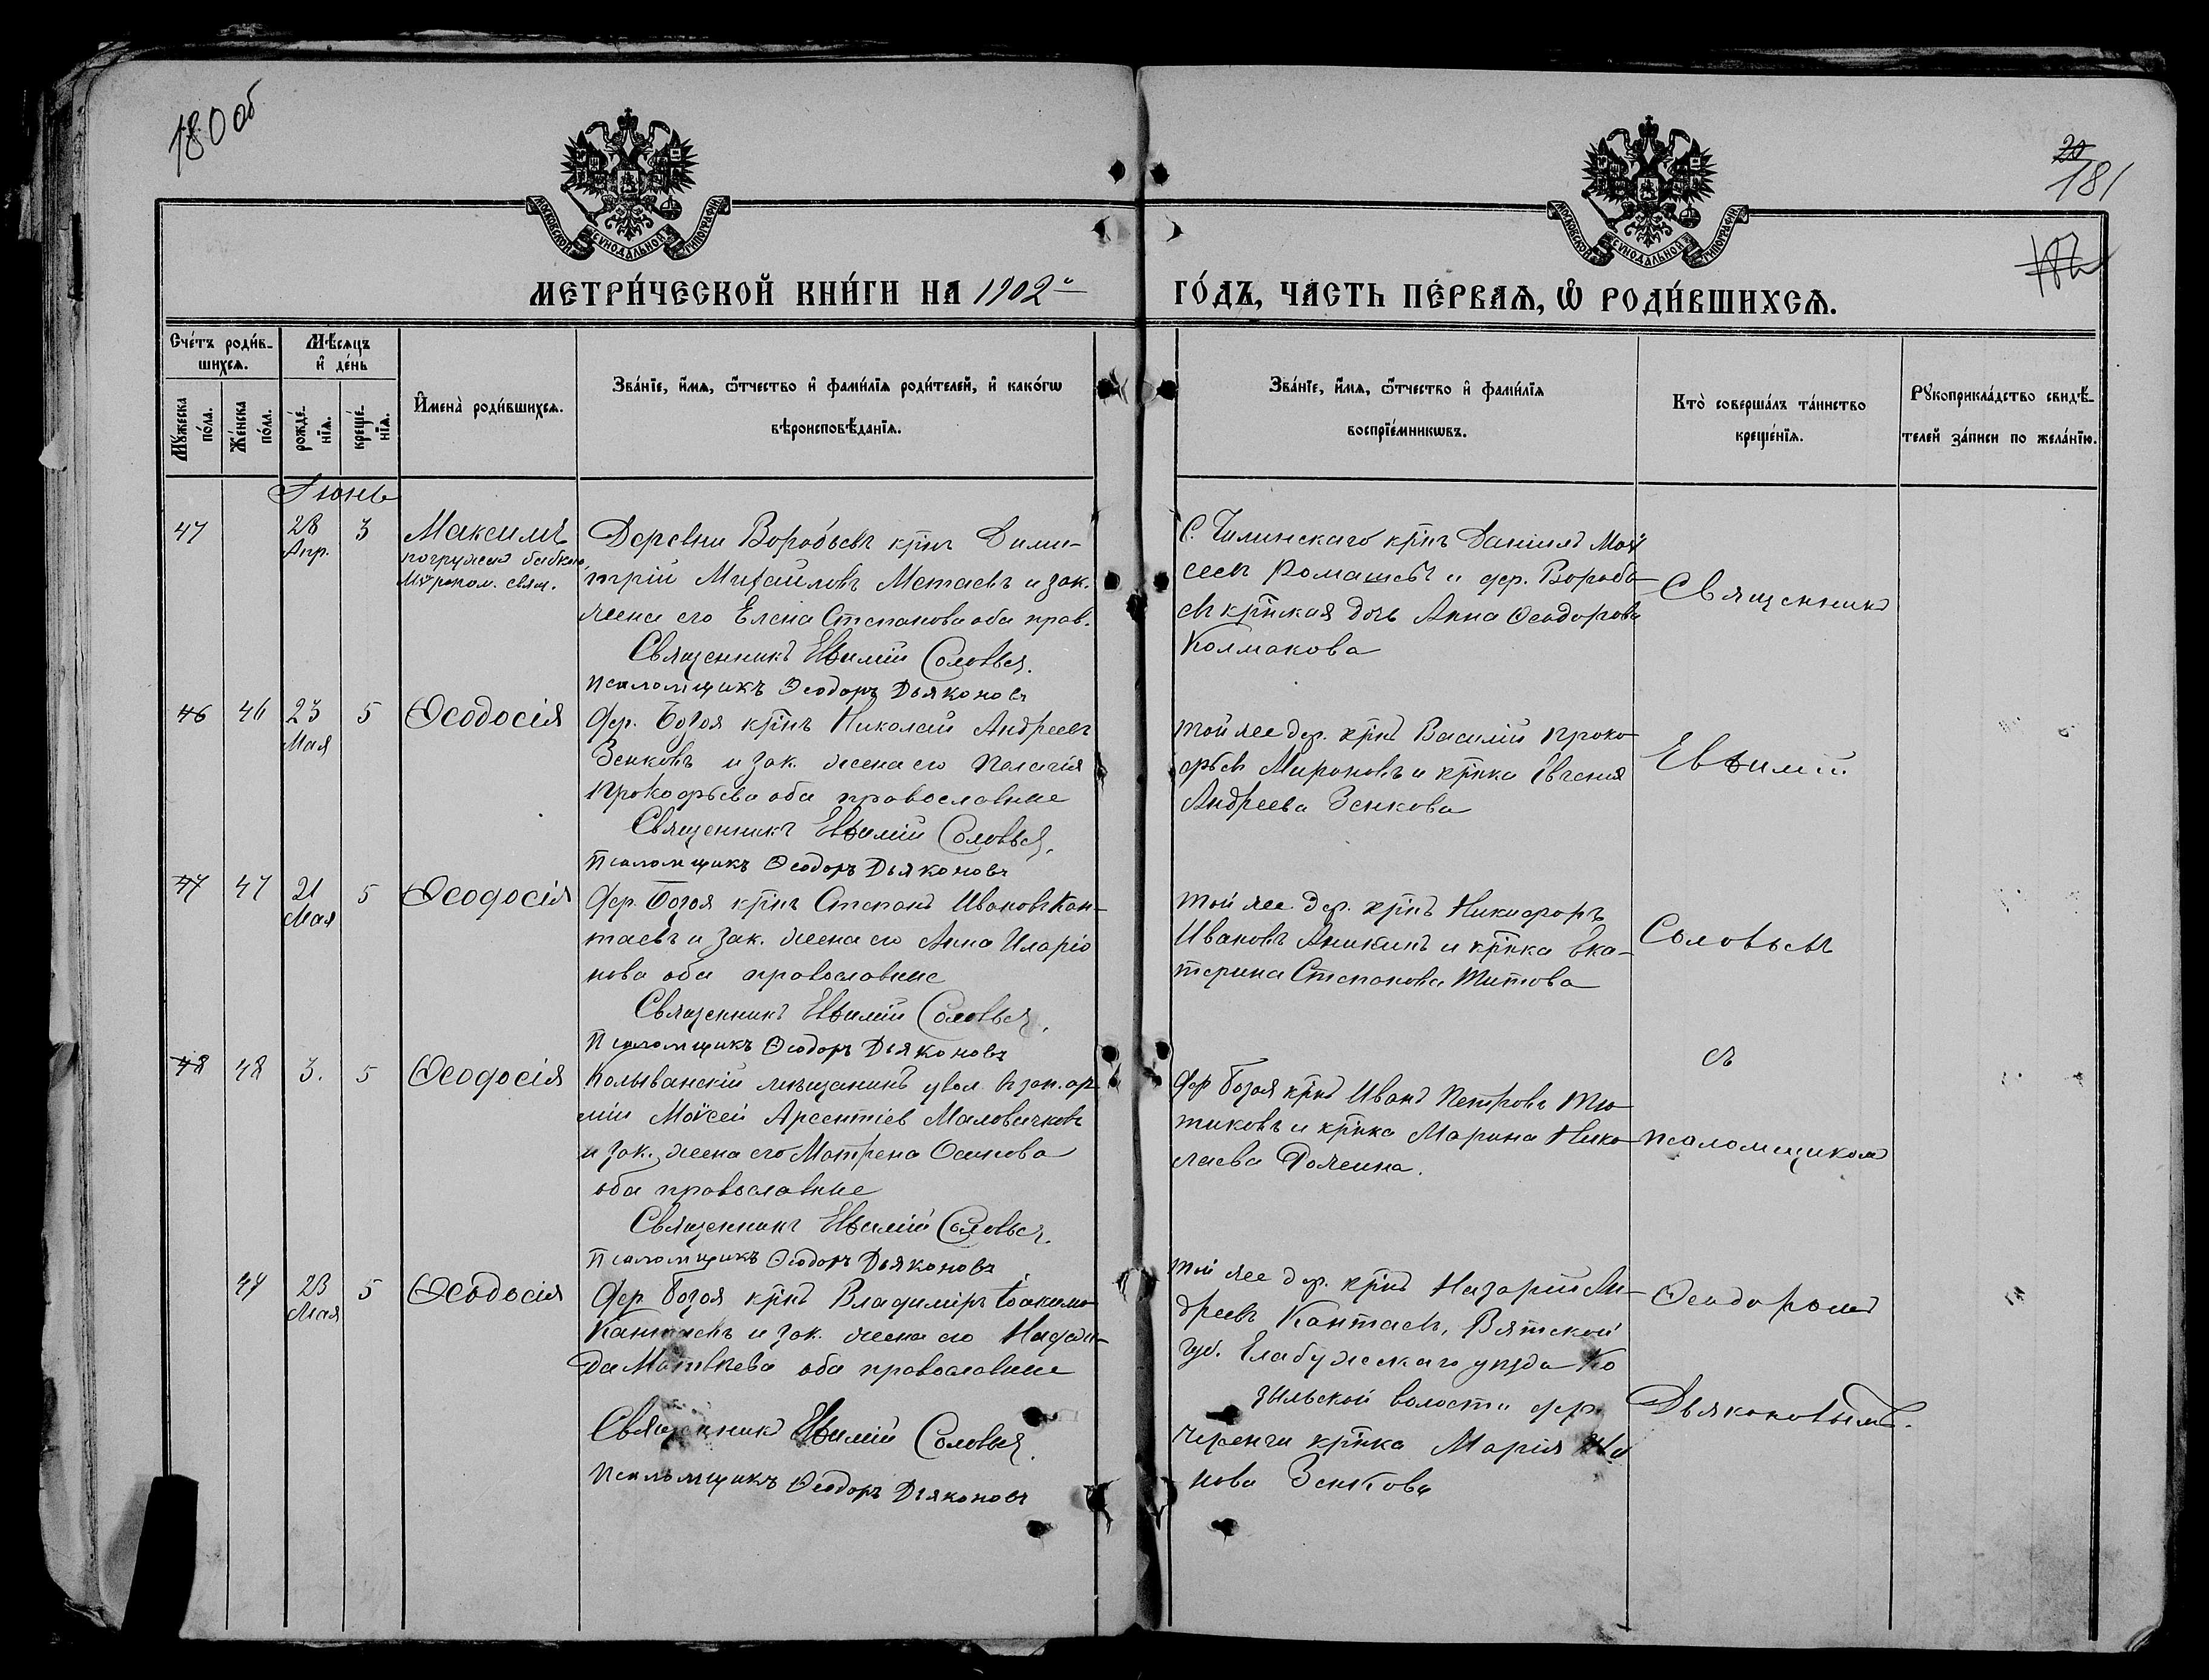 180 об
20
181
182
МОСКОВСКОЙ СУНОДАЛЬНОЙ ТИПОГРАФІИ
МОСКОВСКОЙ СУНОДАЛЬНОЙ ТИПОГРАФІИ
МЕТРИ́ЧЕСКОЙ КНИ́ГИ НА 1902й ГО́ДЪ, ЧА́СТЬ ПЕ́РВАѦ, Ѽ РОДИ́ВШИХСѦ.
Сче́тъ роди́в-
шихсѧ.
Мѣ́сѧцъ
и҆ де́нь
Мꙋ́жеска по́ла.
Же́нска по́ла.
рожде́-нїѧ.
креще́-нїѧ.
И҆мена̀ роди́вшихсѧ.
Зва́нїе, и҆́мѧ, ѻ҆́тчество и҆ фами́лїѧ роди́телей, и҆ како́гѡ
вѣроисповѣ́данїѧ.
Зва́нїе, и҆́мѧ, ѻ҆́тчество и҆ фами́лїѧ
воспрїе́мникѡвъ.
Кто̀ соверша́лъ та́инство
креще́нїѧ.
Рꙋкоприкла́дство свидѣ́-
телей за́писи по жела́нїю.
Іюнь
47 28 Апр. 3 Максимъ
погружен бабкою,
Мѵропом. свящ.
Деревни Воробьевъ крінъ Дими-
трій Михаиловъ Метаевъ и зак.
жена его Елена Степанова оба прав.
Священникъ Евѳимій Соловьев.
Псаломщикъ Ѳеодоръ Дьяконовъ
С. Чилинскаго крінъ Даніилъ Мой
сеевъ Ромашевъ и дер. Воробь-
евъ крінская дочь Анна Ѳеодорова
Колмакова
Священник
46 46 23 Мая 5 Ѳеодосія
Дер. Бозоя крінъ Николай Андреевъ
Зенковъ и зак. жена его Пелагія
Прокофьева оба православные
Священникъ Евѳимій Соловьев.
Псаломщикъ Ѳеодоръ Дьяконовъ
той же дер. крінъ Василій Проко-
фьевъ Мироновъ и крінка Евгенія
Андреева Зенкова
Евѳимій
47 47 21 Мая 5 Ѳеодосія
Дер. Бозоя крінъ Степанъ Ивановъ Кан-
таевъ и зак. жена его Анна Иларіо
нова оба православные
Священникъ Евѳимій Соловьев.
Псаломщикъ Ѳеодоръ Дьяконовъ
той же дер. крінъ Никифоръ
Ивановъ Аникинъ и крінка Ека-
терина Степанова Титова
Соловьевъ
48 48 3. 5 Ѳеодосія
Колыванскій мѣщанинъ увол. в зап. ар
міи Мойсей Арсентіев Маловичковъ
и зак. жена его Матрена Осипова
оба православные
Священникъ Евѳимій Соловьев.
Псаломщикъ Ѳеодоръ Дьяконовъ
съ
дер Бозоя крінъ Иванъ Петровъ Тю-
тиковъ и крінка Марина Нико-
лаева
псаломщиком
49 23 Мая 5 Ѳеодосія
Дер Бозоя крінъ Владиміръ Іоакимо
Кантаевъ и зак. жена его
Матвѣева оба православные
Священник Евѳимій Соловьев.
Псаломщикъ Ѳеодоръ Дьяконовъ
той же дер. крінъ Назарій Ан-
дреевъ Кантаевъ, Вятской
губ. Елабужескаго уезда Ко
зыльской волости дер.
крінка Марія
нова Зенкова
Ѳеодоромъ
Дьяконовымъ.